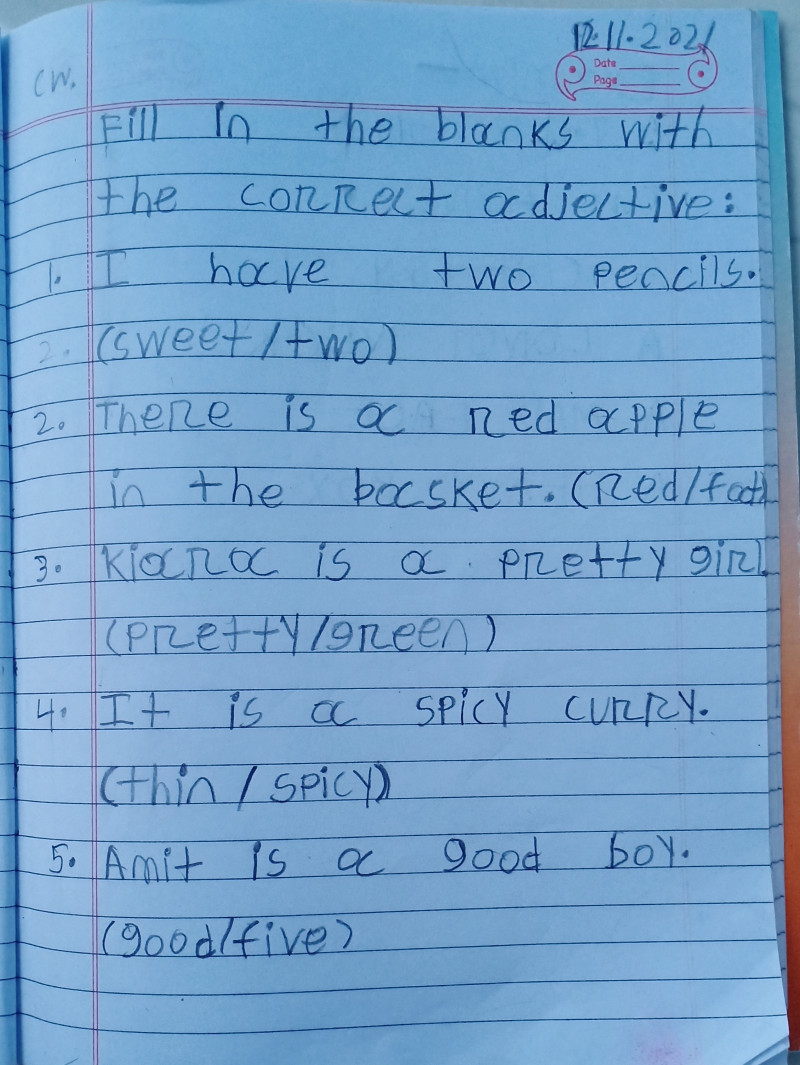 12.11.2021
Date
Page
CW.
Fill in the blanks with
the correct adjective:
1. I have two pencils.
2. (sweet/two)
2. There is a red apple
in the basket. (red/fat)
3. Kiara is a pretty girl
(pretty/green)
4. It is a spicy curry.
(thin / spicy)
5. Amit is a good boy.
(good/five)